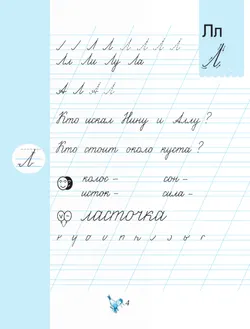 Лл
Л
Лл Ли Лу Ла
А Л А Л
Кто искал Нину и Аллу ?
Кто стоит около куста ?
Л
колос – сон –
исток – сила –
ласточка
4